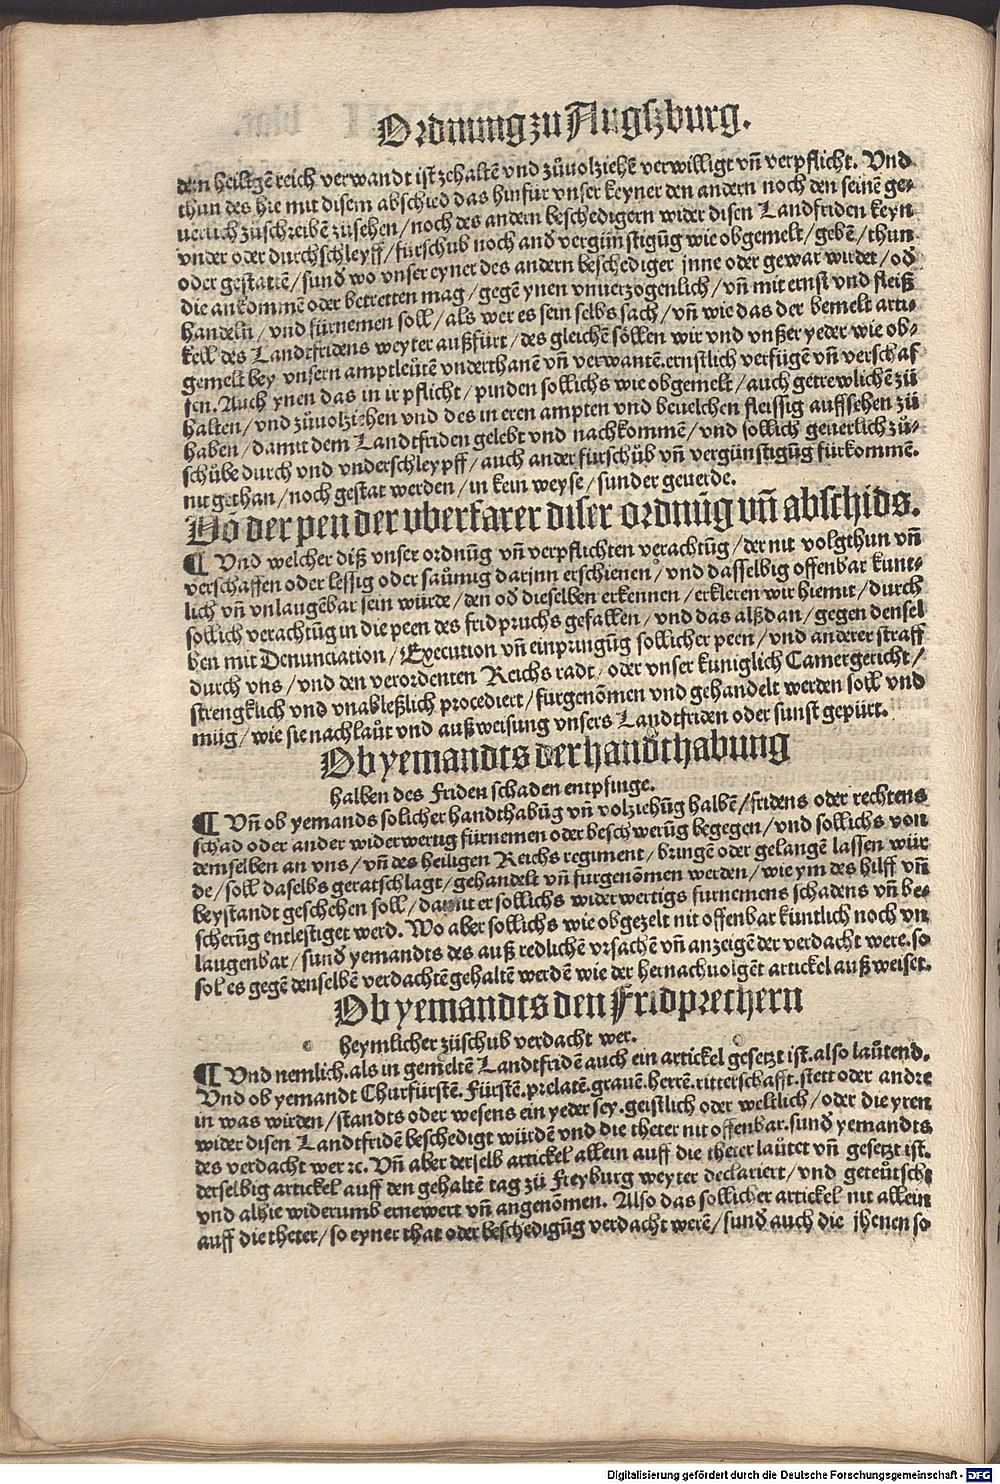 Ordnung zu Augſzburg.
dem heiligẽ reich verwandt iſt zehaltẽ vnd zůuolziehẽ verwilligt vñ verpflicht. Vnd
thun des hie mit diſem abſchied das hinfür vnſer keyner den andern noch den ſeinẽ ge⸗
uerlich zůſchreibẽ zůſehen / noch des andern beſchedigern wider diſen Landfriden keyn
vnder oder durchſchleyff / fürſchub noch and̃ vergünſtigũg wie obgemelt / gebẽ / thun
oder geſtattẽ / ſund̃ wo vnſer eyner des andern beſchediger jnne oder gewar wirdet / od̃
die ankommẽ oder betretten mag / gegẽ ynen vnuerzogenlich / vñ mit ernſt vnd fleiß
handeln / vnd fürnemen ſoll / als wer es ſein ſelbs ſach / vñ wie das der bemelt arti⸗
kell des Landtfridens weyter außfürt / des gleichẽ ſöllen wir vnd vnßer yeder wie ob⸗
gemelt bey vnſern amptleůtẽ vnderthanẽ vñ verwantẽ ernſtlich verfügẽ vñ verſchaf
fen. Auch ynen das in ir pflicht / pinden ſollichs wie obgemelt / auch getrewlichẽ zů
halten / vnd zůuolziehen vnd des in eren ampten vnd beuelchen fleiſſig auffſehen zů
haben / damit dem Landtfriden gelebt vnd nachkommẽ / vnd ſollich geuerlich zů⸗
ſchübe durch vnd vnderſchleypff / auch ander fürſchůb vñ vergünſtigũg fürkommẽ.
nit gethan / noch geſtat werden / in kein weyſe / ſunder geuerde.
Võ der pen der vberfarer diſer ordnũg vñ abſchids.
¶ Vnd welcher diß vnſer ordnũg vñ verpflichten verachtũg / der nit volgthun vñ
verſchaffen oder leſſig oder ſaůmig darjnn erſchienen / vnd daſſelbig offenbar kunt⸗
lich vñ vnlaugẽbar ſein würde / den od̃ dieſelben erkennen / erkleren wir hiemit / durch
ſollich verachtũg in die peen des fridpruchs gefallen / vnd das alßdan / gegen denſel
ben mit Denunciation / Execution vñ einpringũg ſollicher peen / vnd anderer ſtraff
durch vns / vnd den verordenten Reichs radt / oder vnſer kuniglich Camergericht /
ſtrengklich vnd vnableßlich procediert / fürgenõmen vnd gehandelt werden ſoll vnd
müg / wie ſie nachlaůt vnd außweiſung vnſers Landtfriden oder ſunſt gepürt.
Ob yemandts der handthabung
halben des Friden ſchaden entpfinge.
¶ Vñ ob yemands ſolicher handthabũg vñ volziehũg halbẽ / fridens oder rechtens
ſchad oder ander widerwertig fürnemen oder beſchwerũg begegen / vnd ſollichs von
demſelben an vns / vñ des heiligen Reichs regiment / bringẽ oder gelangẽ laſſen wür
de / ſoll daſelbs geratſchlagt / gehandelt vñ furgenõmen werden / wie ym des hilff vñ
beyſtandt geſchehen ſoll / damit er ſollichs widerwertigs furnemens ſchadens vñ be⸗
ſcherũg entleſtiget werd. Wo aber ſollichs wie obgezelt nit offenbar küntlich noch vn
laugenbar / ſund̃ yemandts des auß redlichẽ vrſachẽ vñ anzeigẽ der verdacht were. ſo
ſol es gegẽ denſelbẽ verdachtẽ gehaltẽ werdẽ wie der hernachuolgẽt artickel außweiſet.
Ob yemandts den Fridprechern
heymlicher zůſchub verdacht wer.
¶ Vnd nemlich. als in gemeltẽ Landtfridẽ auch ein artickel geſetzt iſt. alſo laůtend.
Vnd ob yemandt Churfürſtẽ. Fürſtẽ. prelatẽ. grauẽ. herrẽ. ritterſchafft. ſtett oder andre
in was wirden / ſtandts oder weſens ein yeder ſey. geiſtlich oder weltlich / oder die yren
wider diſen Landtfridẽ beſchedigt würdẽ vnd die theter nit offenbar. ſund̃ yemandts
des verdacht wer ꝛc. Vñ aber derſelb artickel allein auff die theter laůtet vñ geſetzt iſt.
derſelbig artickel auff den gehaltẽ tag zů Freyburg weyter declariert / vnd geteůtſcht
vnd alhie widerumb ernewert vñ angenõmen. Alſo das ſollicher artickel nit allein
auff die theter / ſo eyner that oder beſchedigũg verdacht werẽ / ſund̃ auch die jhenen ſo
Digitalisierung gefördert durch die Deutsche Forschungsgemeinschaft - DFG